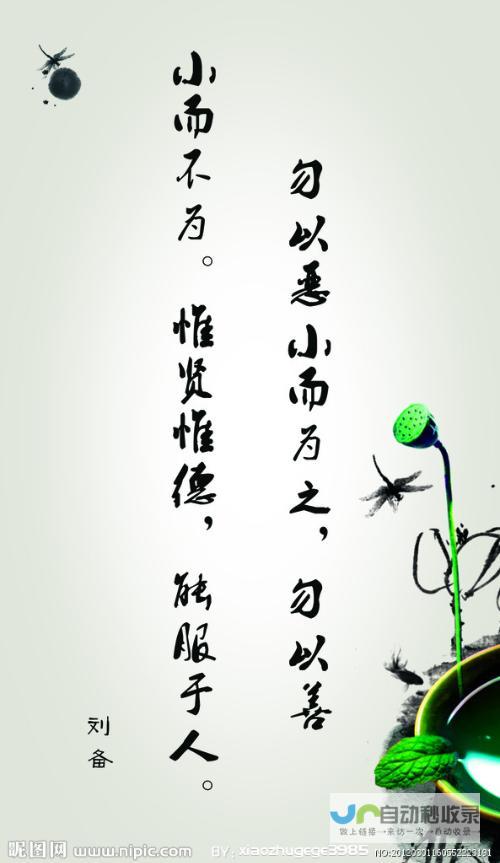 勿以恶小而为之，勿以善
小而不为。惟贤惟德，能服于人。
刘备
自动秒收录
做上链接→来访一次→自动收录
昵图网 www.nipic.com
BY: xiaozhugege3985